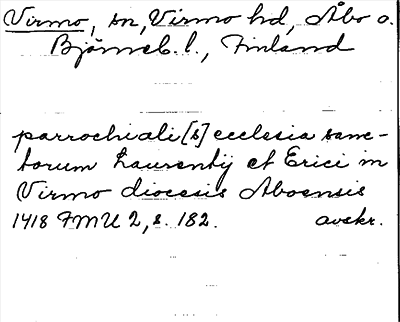 Virmo, sn, Virmo hd, Åbo o.
Björneb. l., Finland
parrochiali[s] ecclesia sanc-
torum Laurentij et Erici in
Virmo diocesis Aboensis
1418 FMU 2, s. 182. avskr.